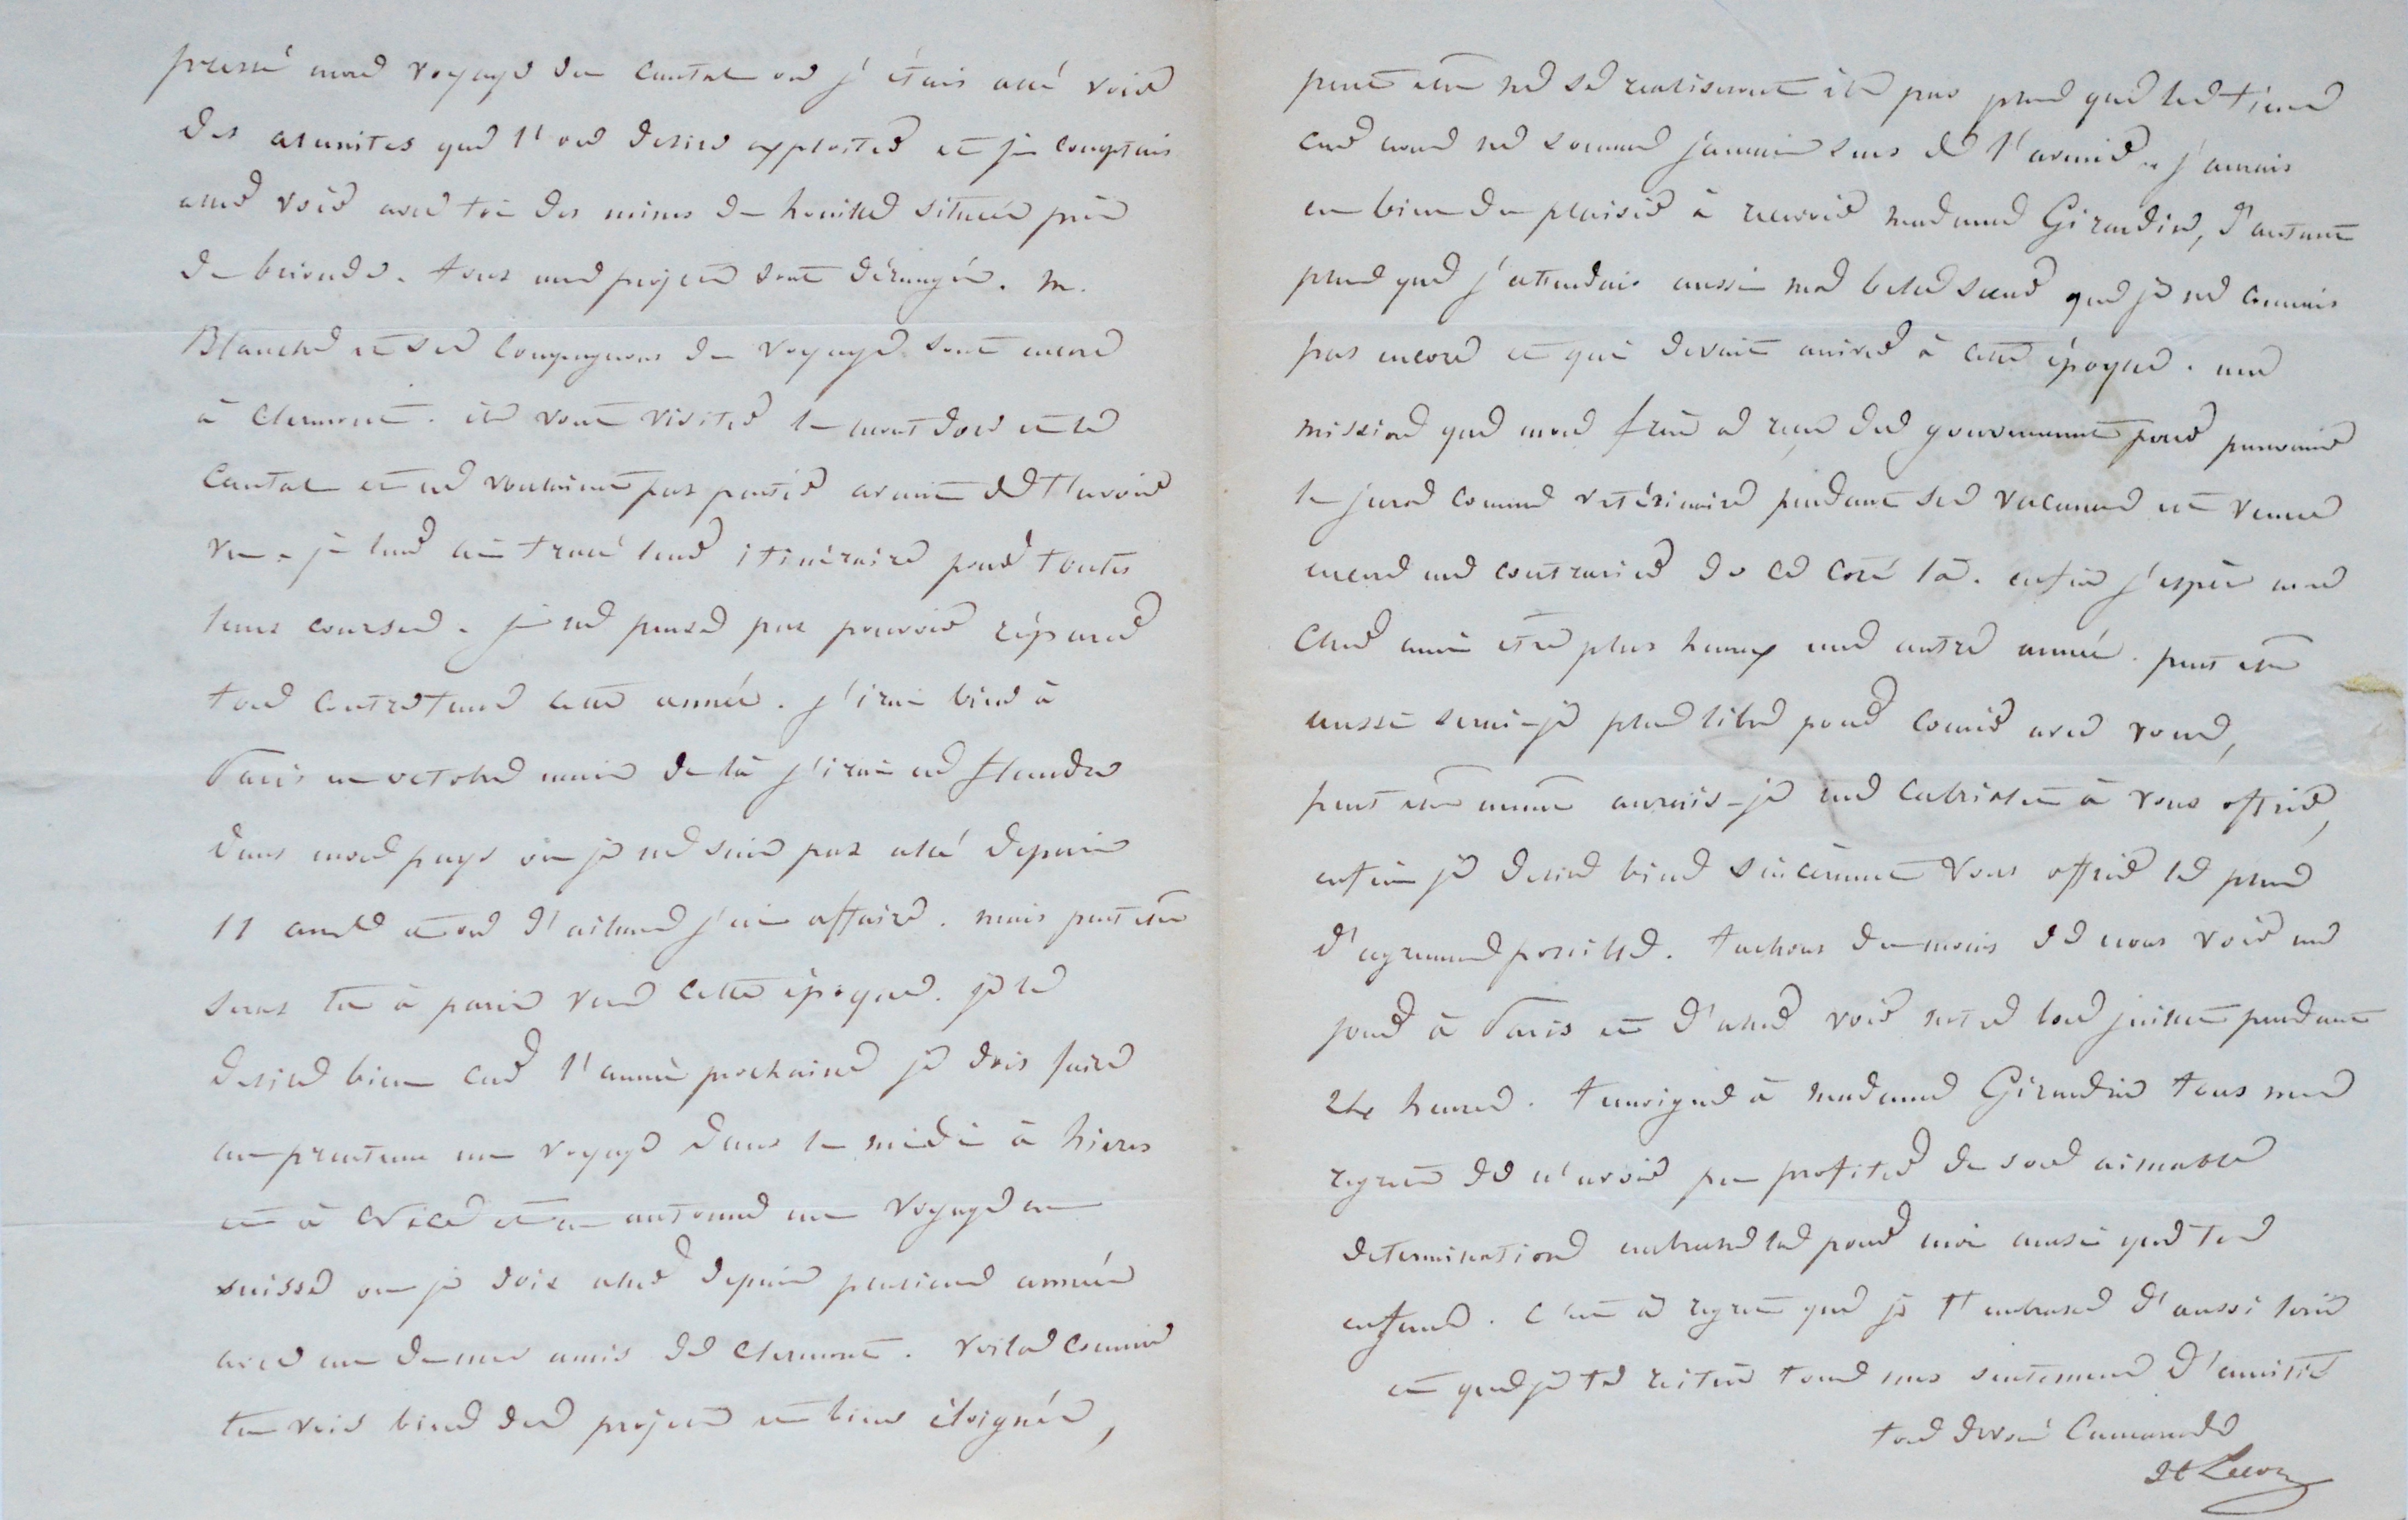 pressé mon voyage du Cantal ou j'étais allé voir
des alunites que l'on desire exploiter et je comptais
aller voir avec toi des mines de houille situées près
de brioude. tous mes projets sont dérangés. M.
Blanche et ses compagnons de voyage sont encore
à Clermont. ils vont visiter le mont dore et le
Cantal et ne voulaient pas partir avant de t'avoir
vu. je leur ai tracé leur itinéraire pour toutes
leurs courses. je ne pense pas pouvoir réparer
ton contretems cette année. j'irai bien à
Paris en octobre mais de la j'irai en flandre
dans mon pays où je ne suis pas allé depuis
11 ans et ou d'ailleurs j'ai affaire. mais peut etre
seras tu à paris vers cette époque. je le
desire bien car l'année prochaine je dois faire
au printems un voyage dans le midi à hieres
et à Nice et en automne un voyage en
suisse ou je dois aller depuis plusieurs années
avec un de mes amis de Clermont. voila comme
tu vois bien des projets et bien éloignés,
peut etre ne se realiseront ils pas plus que les tiens
car nous ne sommes jamais surs de l'avenir. j'aurais
eu bien du plaisir à recevoir madame Girardin, d'autant
plus que j'attendais aussi ma belle soeur que je ne connais
pas encore et qui devait arriver à cette époque. une
mission que mon frère a reçu du gouvernement pour parcourir
le jura comme vétérinaire pendant ses vacances est venue
encore me contrarier de ce coté là. enfin j'espère mon
cher ami etre plus heureux une autre année. peut etre
aussi serai-je plus libre pour courir avec vous,
peut etre meme aurais-je un cabriolet à vous offrir,
enfin je desire bien sincèrement vous offrir le plus
d'agrement possible. tachons du moins de nous voir un
jour à Paris et d'aller voir notre bon juillet pendant
24 heures. temoigne à madame Girardin tous mes
regrets de n'avoir pu profiter de son aimable
determination embrasse la pour moi ainsi que tes
enfans. c'est à regret que je t'embrasse d'aussi loin
et que je te reitère tous mes sentimens d'amitié
ton devoué Camarade
H Lecoq